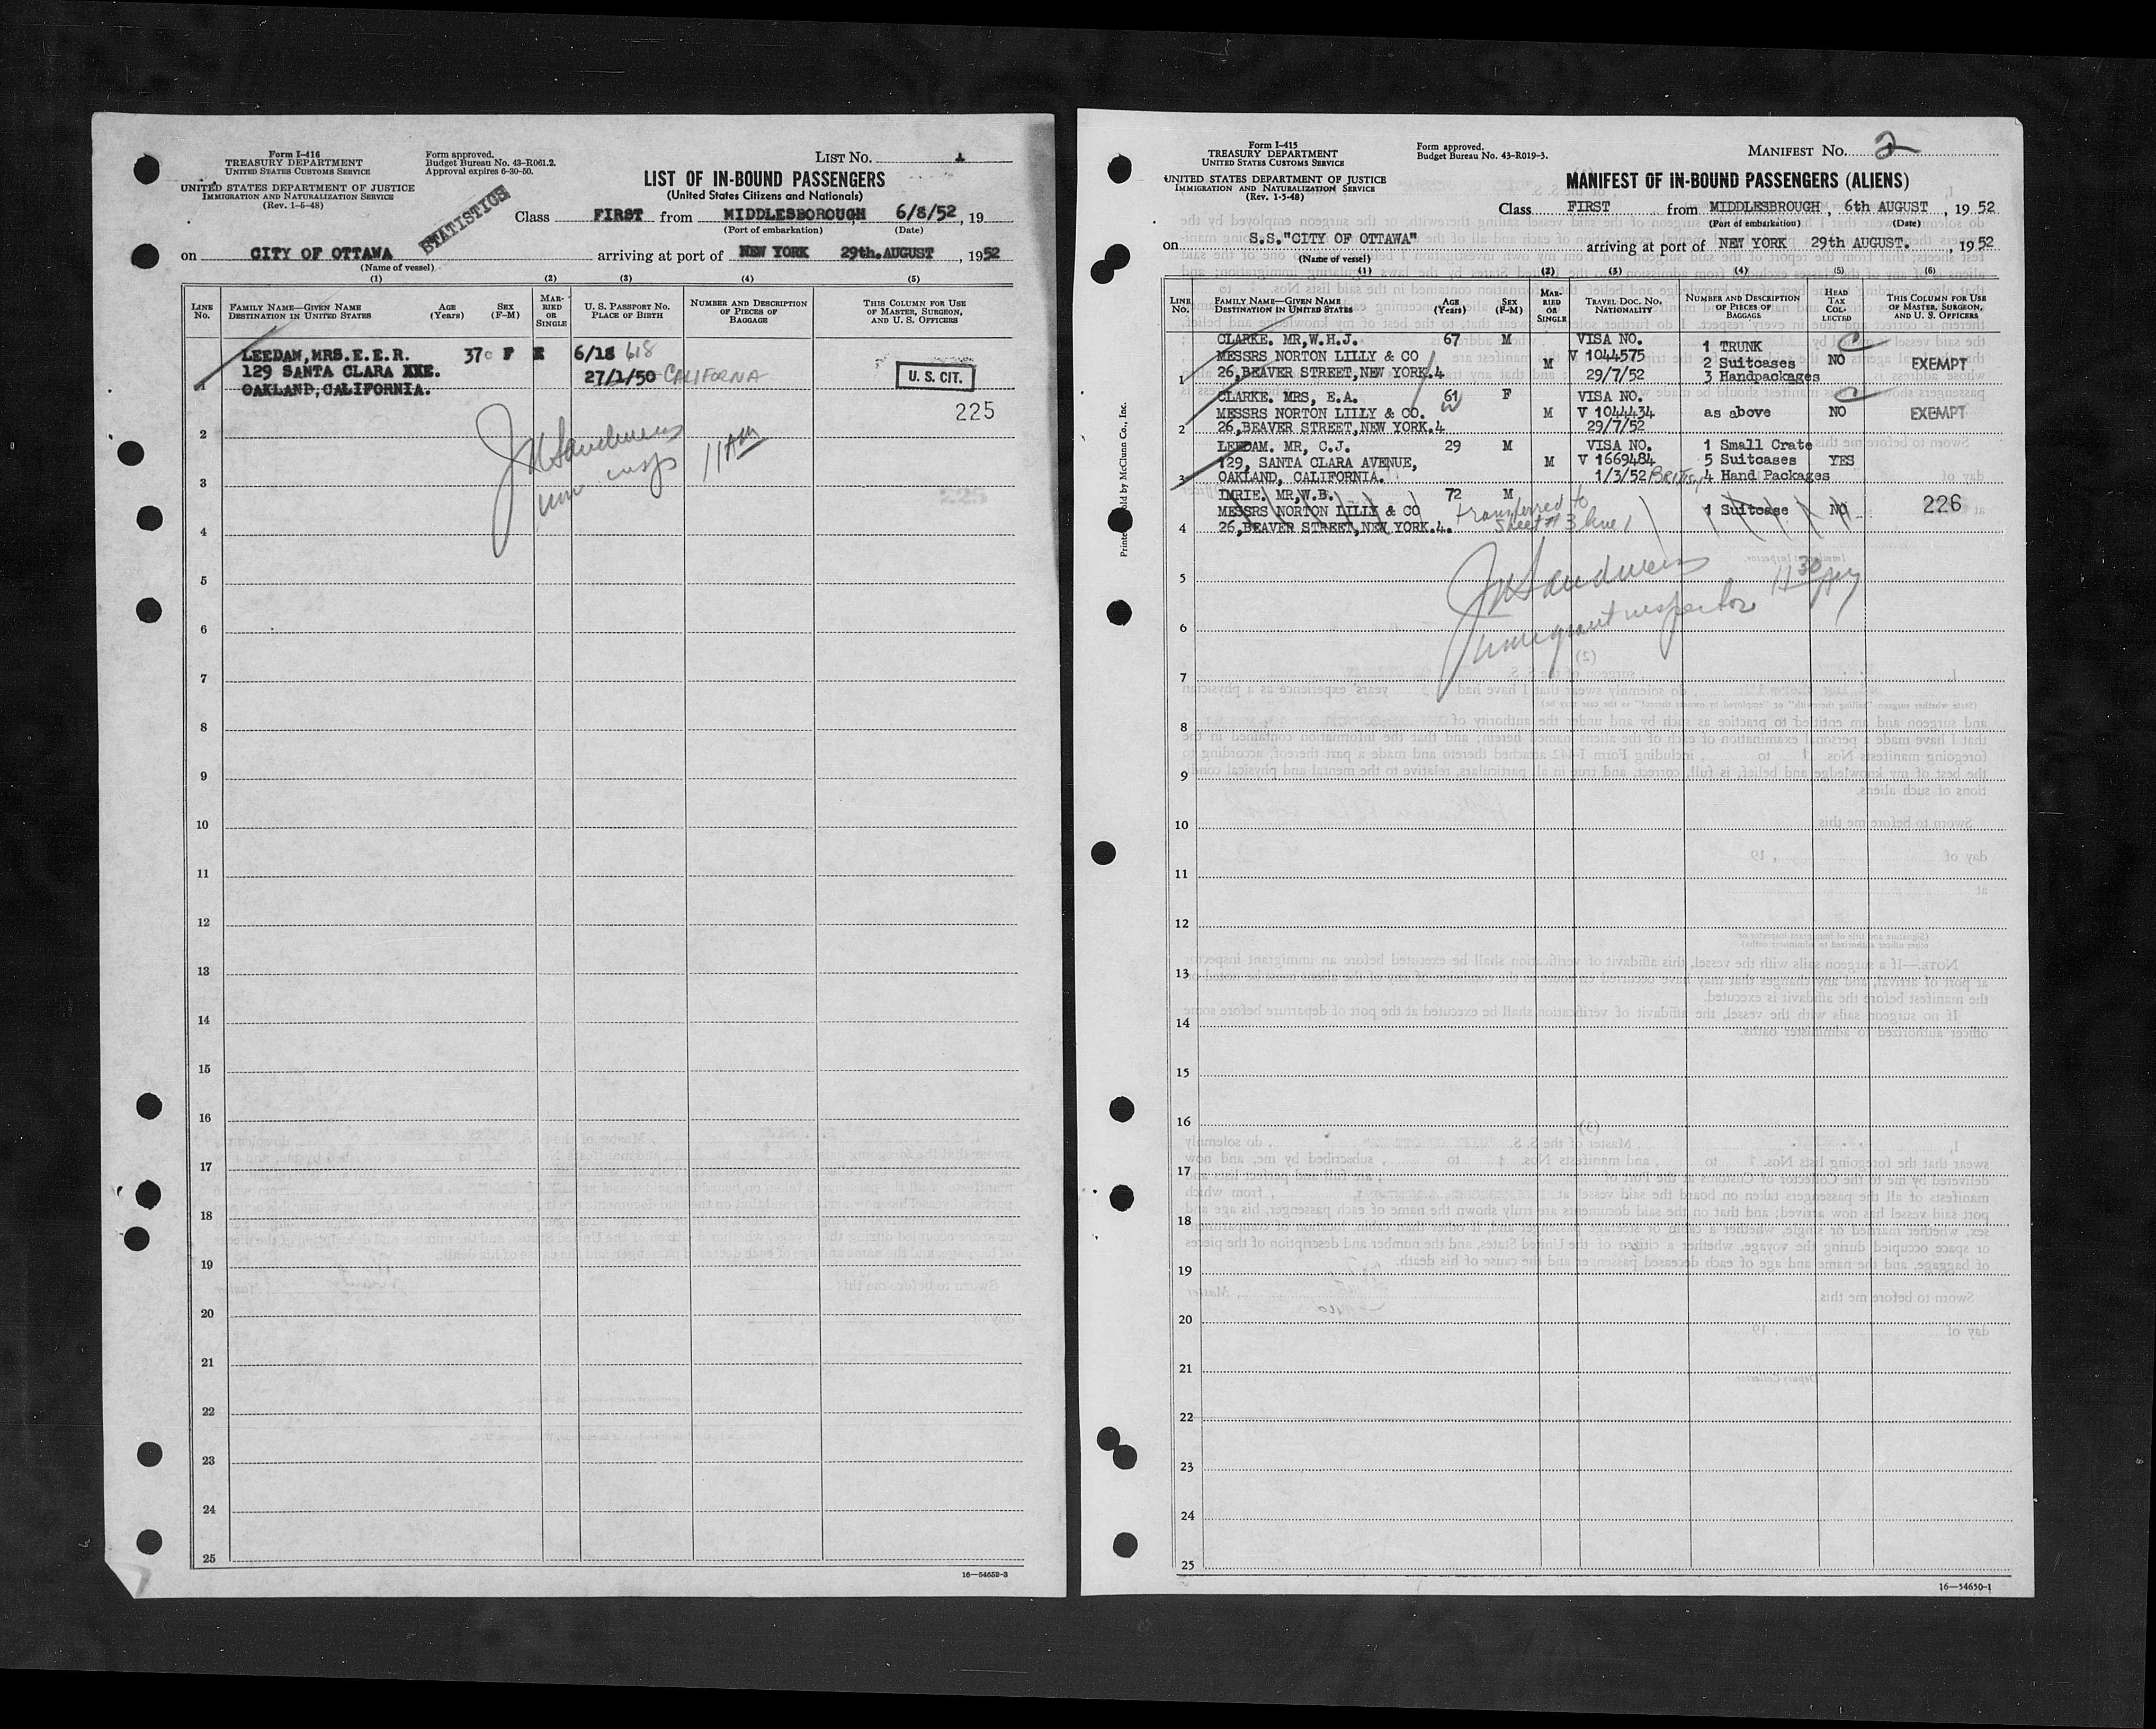 Form I-416
TREASURY DEPARTMENT
UNITED STATES CUSTOMS SERVICE
UNITED STATES DEPARTMENT OF JUSTICE
IMMIGRATION AND NATURALIZATION SERVICE
(Rev. 1-5-48)
Form approved.
Budget Bureau No. 43-R061.2.
Approval expires 6-30-50.
STATISTICS
LIST NO. 1
LIST OF IN-BOUND PASSENGERS
(United States Citizens and Nationals)
Class FIRST from MIDDLESBOROUGH 6/8/52, 19
(Port of embarkation) (Date)
on CITY OF OTTAWA arriving at port of NEW YORK 29th.AUGUST, 1952
(Name of vessel)
(1) (2) (3) (4) (5)
LINE NO. FAMILY NAME—GIVEN NAME DESTINATION IN UNITED STATES AGE (Years) SEX (F-M) MARRIED OR SINGLE U. S. PASSPORT NO. PLACE OF BIRTH NUMBER AND DESCRIPTION OF PIECES OF BAGGAGE THIS COLUMN FOR USE OF MASTER, SURGEON, AND U. S. OFFICERS
LEEDAM,MRS.E.E.R. 37 F 6/18 618
129 SANTA CLARA XXE. 27/1/50 CALIFORNIA U. S. CIT.
1 OAKLAND,CALIFORNIA.
225
2
11 AM
3
4
5
6
7
8
9
10
11
12
13
14
15
16
17
18
19
20
21
22
23
24
25
16—54652-3
Form I-415
TREASURY DEPARTMENT
UNITED STATES CUSTOMS SERVICE
UNITED STATES DEPARTMENT OF JUSTICE
IMMIGRATION AND NATURALIZATION SERVICE
(Rev. 1-5-48)
Form approved.
Budget Bureau No. 43-R019-3.
MANIFEST NO. 2
MANIFEST OF IN-BOUND PASSENGERS (ALIENS)
Class FIRST from MIDDLESBROUGH, 6th AUGUST, 1952
(Port of embarkation) (Date)
on S.S."CITY OF OTTAWA" arriving at port of NEW YORK 29th AUGUST., 1952
(Name of vessel)
(1) (2) (3) (4) (5) (6)
LINE NO. FAMILY NAME—GIVEN NAME DESTINATION IN UNITED STATES AGE (Years) SEX (F-M) MARRIED OR SINGLE TRAVEL DOC. NO. NATIONALITY NUMBER AND DESCRIPTION OF PIECES OF BAGGAGE HEAD TAX COLLECTED THIS COLUMN FOR USE OF MASTER, SURGEON, AND U. S. OFFICERS
CLARKE. MR,W.H.J. 67 M VISA NO. 1 TRUNK
MESSRS NORTON LILLY & CO M V 1044575 2 Suitcases NO EXEMPT
1 26,BEAVER STREET,NEW YORK.4 29/7/52 3 Handpackages
CLARKE. MRS, E.A. 61 F VISA NO.
MESSRS NORTON LILLY & CO. M V 1044434 as above NO EXEMPT
2 26,BEAVER STREET,NEW YORK.4 29/7/52
LEEDAM. MR, C.J. 29 M VISA NO. 1 Small Crate
129, SANTA CLARA AVENUE, M V 1669484 5 Suitcases YES
3 OAKLAND, CALIFORNIA. 1/3/52 British 4 Hand Packages
IMRIE. MR,W.B. 72 M
MESSRS NORTON LILLY & CO transferred to 1 Suitcase NO 226
4 26,BEAVER STREET,NEW YORK.4. Sheet # 3 line 1
5
11 30 AM
Immigrant inspector
6
7
8
9
10
11
12
13
14
15
16
17
18
19
20
21
22
23
24
25
16—54650-1